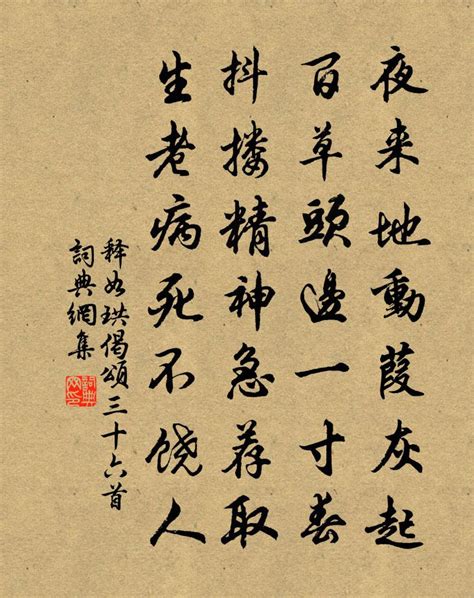 夜来地動葭灰起
百草頭邊一寸春
抖搂精神急荐取
生老病死不饶人
释如珙偈頌三十六首
詞典網集